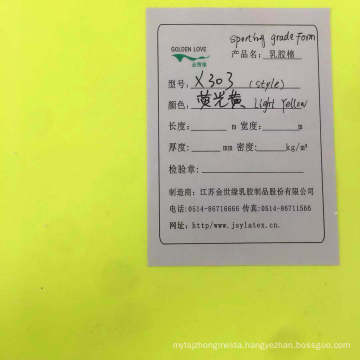 sporting grade form
GOLDEN LOVE
金世缘
产品名: 乳胶棉
型号: X303 (style)
颜色: 荧光黄 light yellow
长度: m 宽度: m
厚度: mm 密度: kg/m³
检验章:
制造商: 江苏金世缘乳胶制品股份有限公司
电话: 0514-86716666 传真: 0514-86711566
网址: http/www.jsylatex.cn
mytaizhongmeida.en.alibaba.com